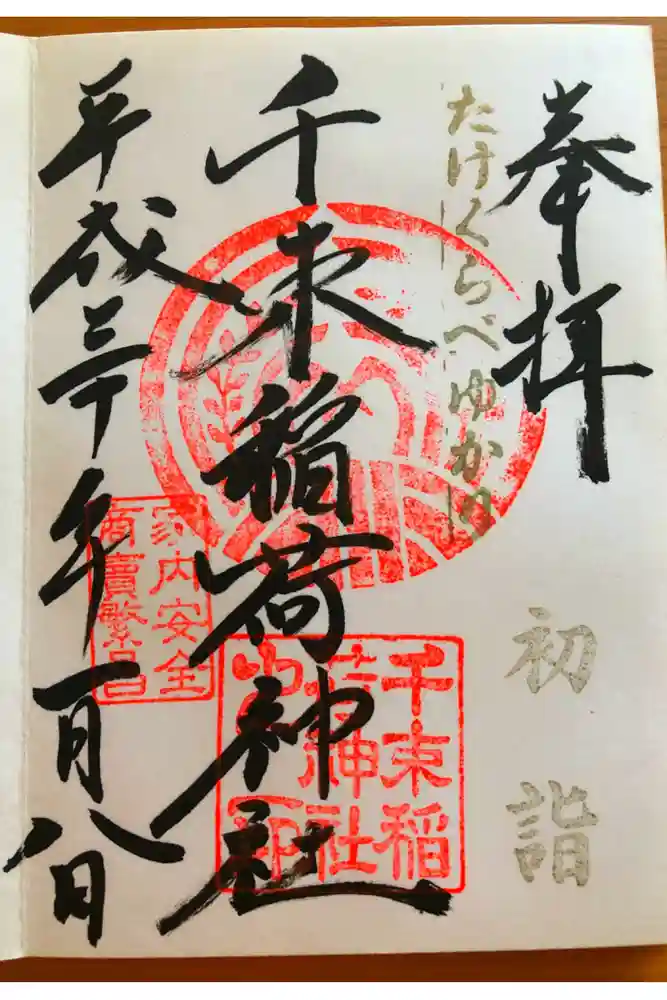 奉拝
初詣
たけくらべゆかりの
千束稲荷神社
平成三十年一月八日
家内安全
商賣繁昌
千束稲
荷神社